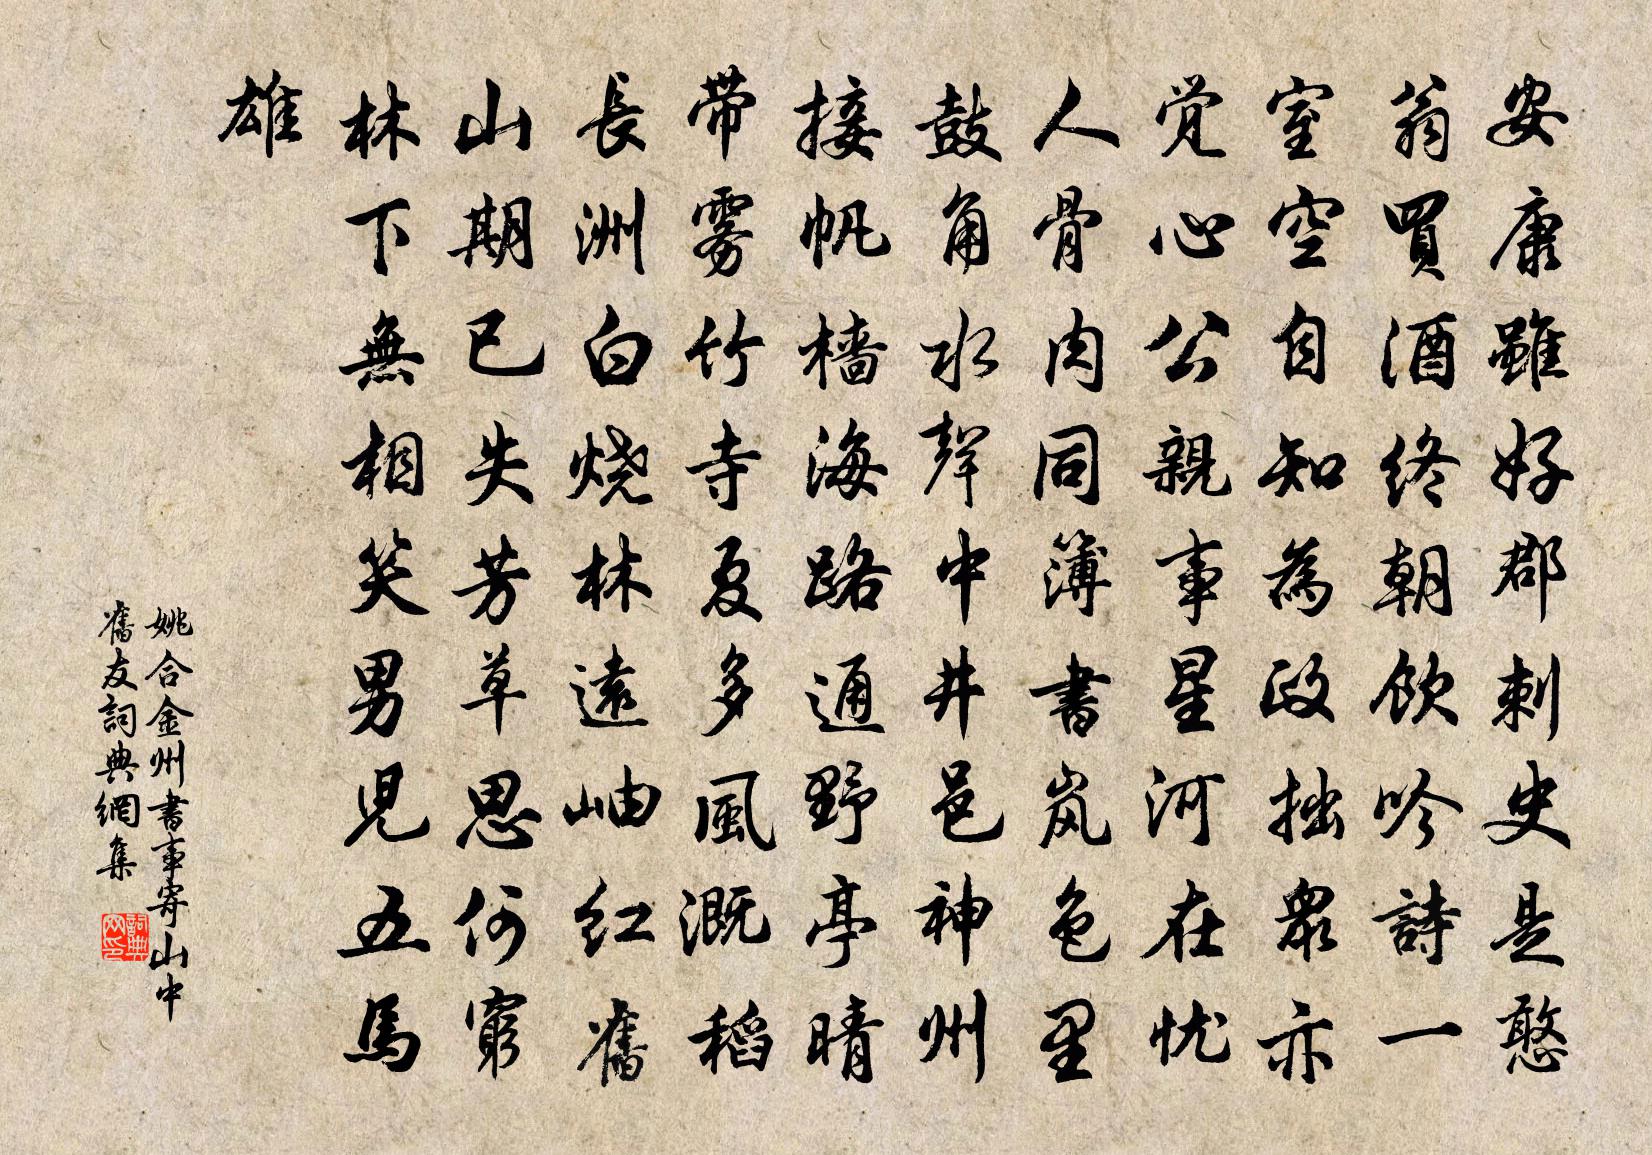 安康雖好郡刺史是憨
翁買酒终朝飲吟詩一
室空自知為政拙衆亦
觉心公親事星河在忧
人骨肉同簿書岚色里
鼓角水聲中井邑神州
接帆檣海路通野亭晴
带雾竹寺夏多風溉稻
長洲白烧林遠岫红舊
山期已失芳草思何窮
林下無相笑男児五馬
雄
姚合金州書事寄山中
舊友詞典網集